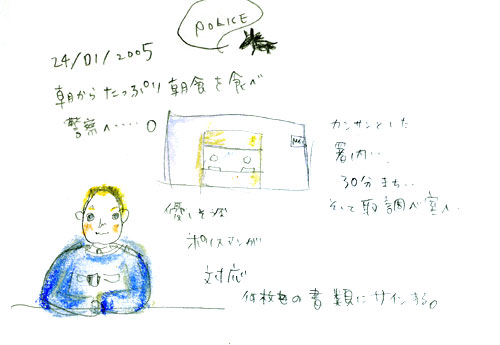 POLICE
24/01/2005
朝からたっぷり朝食を食べ
警察へ……0
カンサンとした
署内…
30分まち…
そして取調べ室へ…
優しそうな
ポリスマンが
対応
何枚もの書類にサインする。